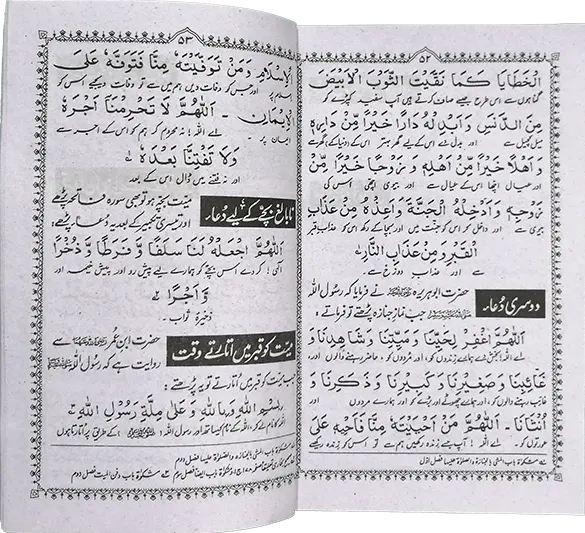 ۵۲
الْخَطَايَا كَمَا نَقَّيْتَ الثَّوْبَ الْاَبْيَضَ
گناہوں سے اس طرح جیسے صاف کرتے ہیں آپ سفید کپڑے کو
مِنَ الدَّنَسِ وَاَبْدِلْهُ دَارًا خَيْرًا مِّنْ دَارِهٖ
میل کچیل سے اور بدل دے اس کے لیے گھر بہتر اس کے (دنیا کے) گھر سے
وَاَهْلًا خَيْرًا مِّنْ اَهْلِهٖ وَزَوْجًا خَيْرًا مِّنْ
اور عیال اچھا اس کے عیال سے اور بیوی اچھی اس کی
زَوْجِهٖ وَاَدْخِلْهُ الْجَنَّةَ وَاَعِذْهُ مِنْ عَذَابِ
بیوی سے اور داخل کر اس کو جنت میں اور بچا کے رکھ اس کو عذاب قبر
الْقَبْرِ وَمِنْ عَذَابِ النَّارِ
سے اور عذاب دوزخ سے
دوسری دُعا
حضرت ابوہریرہ نے فرمایا کہ رسول اللہ
جب نماز جنازہ پڑھتے تو فرماتے:
اَللّٰهُمَّ اغْفِرْ لِحَيِّنَا وَمَيِّتِنَا وَشَاهِدِنَا وَ
اے اللہ! بخش دے ہمارے زندوں کو، اور مُردوں کو، حاضر رہنے والوں اور
غَآئِبِنَا وَصَغِيْرِنَا وَكَبِيْرِنَا وَذَكَرِنَا وَ
غائب رہنے والوں کو، اور ہمارے چھوٹے اور بڑے کو اور ہمارے مردوں اور
اُنْثَانَا۔ اَللّٰهُمَّ مَنْ اَحْيَيْتَهٗ مِنَّا فَاَحْيِهٖ عَلَى
عورتوں کو اے اللہ! آپ جسے زندہ رکھیں ہم سے تو اس کو زندہ رکھیے
مشکوٰۃ باب المشی بالجنازۃ والصلوٰۃ علیہا فصل اوّل
۵۳
الْاِسْلَامِ وَمَنْ تَوَفَّيْتَهٗ مِنَّا فَتَوَفَّهٗ عَلَى
اسلام پر اور جس کو وفات دیں ہم میں سے تو وفات دیجیے اس کو
الْاِيْمَانِ۔ اَللّٰهُمَّ لَا تَحْرِمْنَا اَجْرَهٗ
ایمان پر۔ اے اللہ! نہ محروم کر ہم کو اس کے اجر سے
وَلَا تَفْتِنَّا بَعْدَهٗ
اور نہ فتنے میں ڈال اس کے بعد
نابالغ بچے کے لیے دُعا
میت بچہ ہو تو بھی سورہ فاتحہ پڑھے
اور تیسری تکبیر کے بعد یہ دعا پڑھے:
اَللّٰهُمَّ اجْعَلْهُ لَنَا سَلَفًا وَّفَرَطًا وَّذُخْرًا
الٰہی! کر دے اس بچے کو ہمارے لیے پیش رو اور پیش خیمہ اور
وَّاَجْرًا
ذخیرہ ثواب۔
میّت کو قبر میں اتارتے وقت
حضرت ابن عمر سے
روایت ہے کہ رسول اللہ
جب میت کو قبر میں اُتارتے تو یہ پڑھتے:
بِسْمِ اللّٰهِ وَبِاللّٰهِ وَعَلٰى مِلَّةِ رَسُوْلِ اللّٰهِ
اللہ کے نام کیساتھ اور رسول اللہ کے طریق پر اُتارتا ہوں
مشکوٰۃ باب المشی بالجنازۃ والصلوٰۃ علیہا فصل دوم
مشکوٰۃ باب دفن المیت فصل دوم